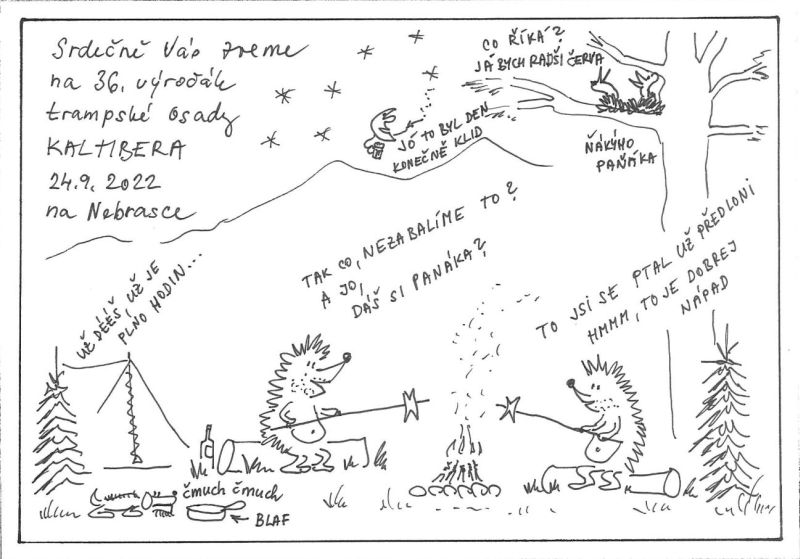 Srdečně Vás zveme
na 36. výročák
trampské osady
KALTIBERA
24.9. 2022
na Nebrasce
CO ŘÍKÁ?
JÁ BYCH RADŠI ČERVA
JÓ TO BYL DEN
KONEČNĚ KLID
ŇÁKÝHO
PAŇÁKA
UŽ DÉÉŠ UŽ JE
PLNO HODIN...
TAK CO, NEZABALÍME TO?
A JO,
DÁŠ SI PANÁKA?
TO JSI SE PTAL UŽ PŘEDLONI
HMMM, TO JE DOBREJ
NÁPAD
čmuch čmuch
BLAF